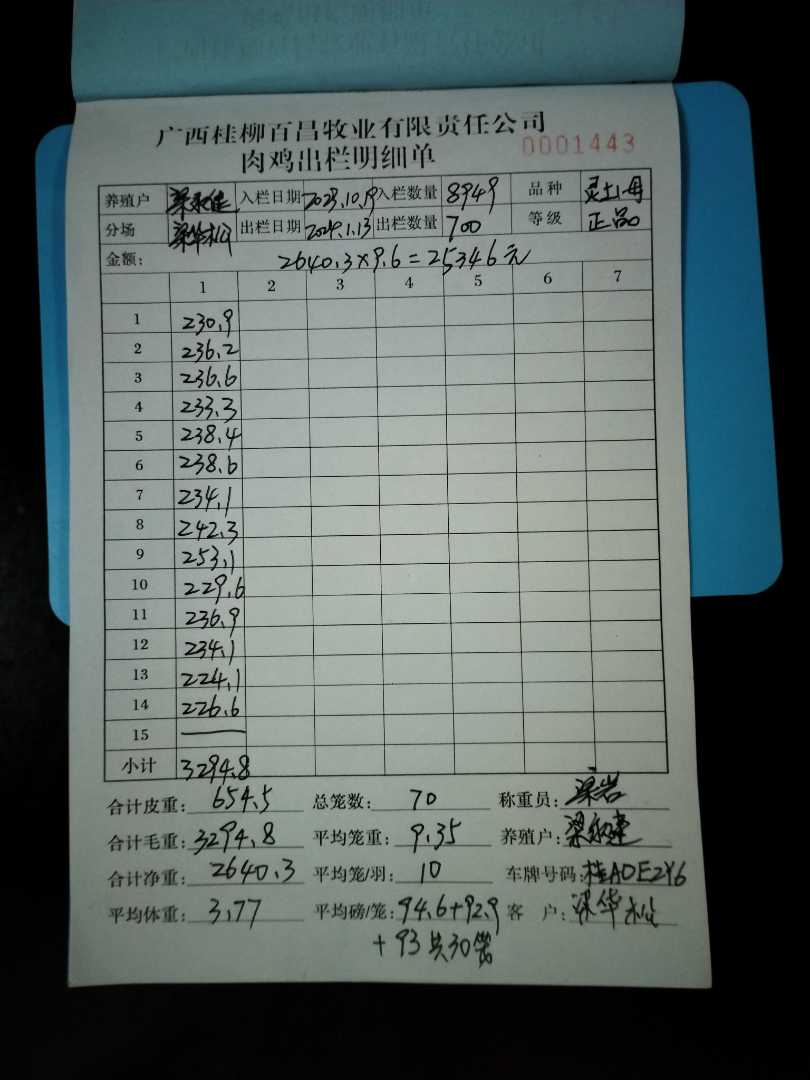 广西桂柳百昌牧业有限责任公司
肉鸡出栏明细单 0001443
养殖户 入栏日期 2023.10.19 入栏数量 8949 品种 灵土母
分场 梁华松 出栏日期 2024.1.13 出栏数量 700 等级 正品
金额: 2640.3×9.6=25346元
1 2 3 4 5 6 7
1 230.9
2 236.2
3 236.6
4 233.3
5 238.4
6 238.6
7 234.1
8 242.3
9 253.1
10 229.6
11 236.9
12 234.1
13 224.1
14 226.6
15 —
小计 3294.8
合计皮重: 654.5 总笼数: 70 称重员: 梁岩
合计毛重: 3294.8 平均笼重: 9.35 养殖户:
合计净重: 2640.3 平均笼/羽: 10 车牌号码: 桂ADE2Y6
平均体重: 3.77 平均磅/笼: 94.6+92.9 客户: 梁华松
+93共30笼